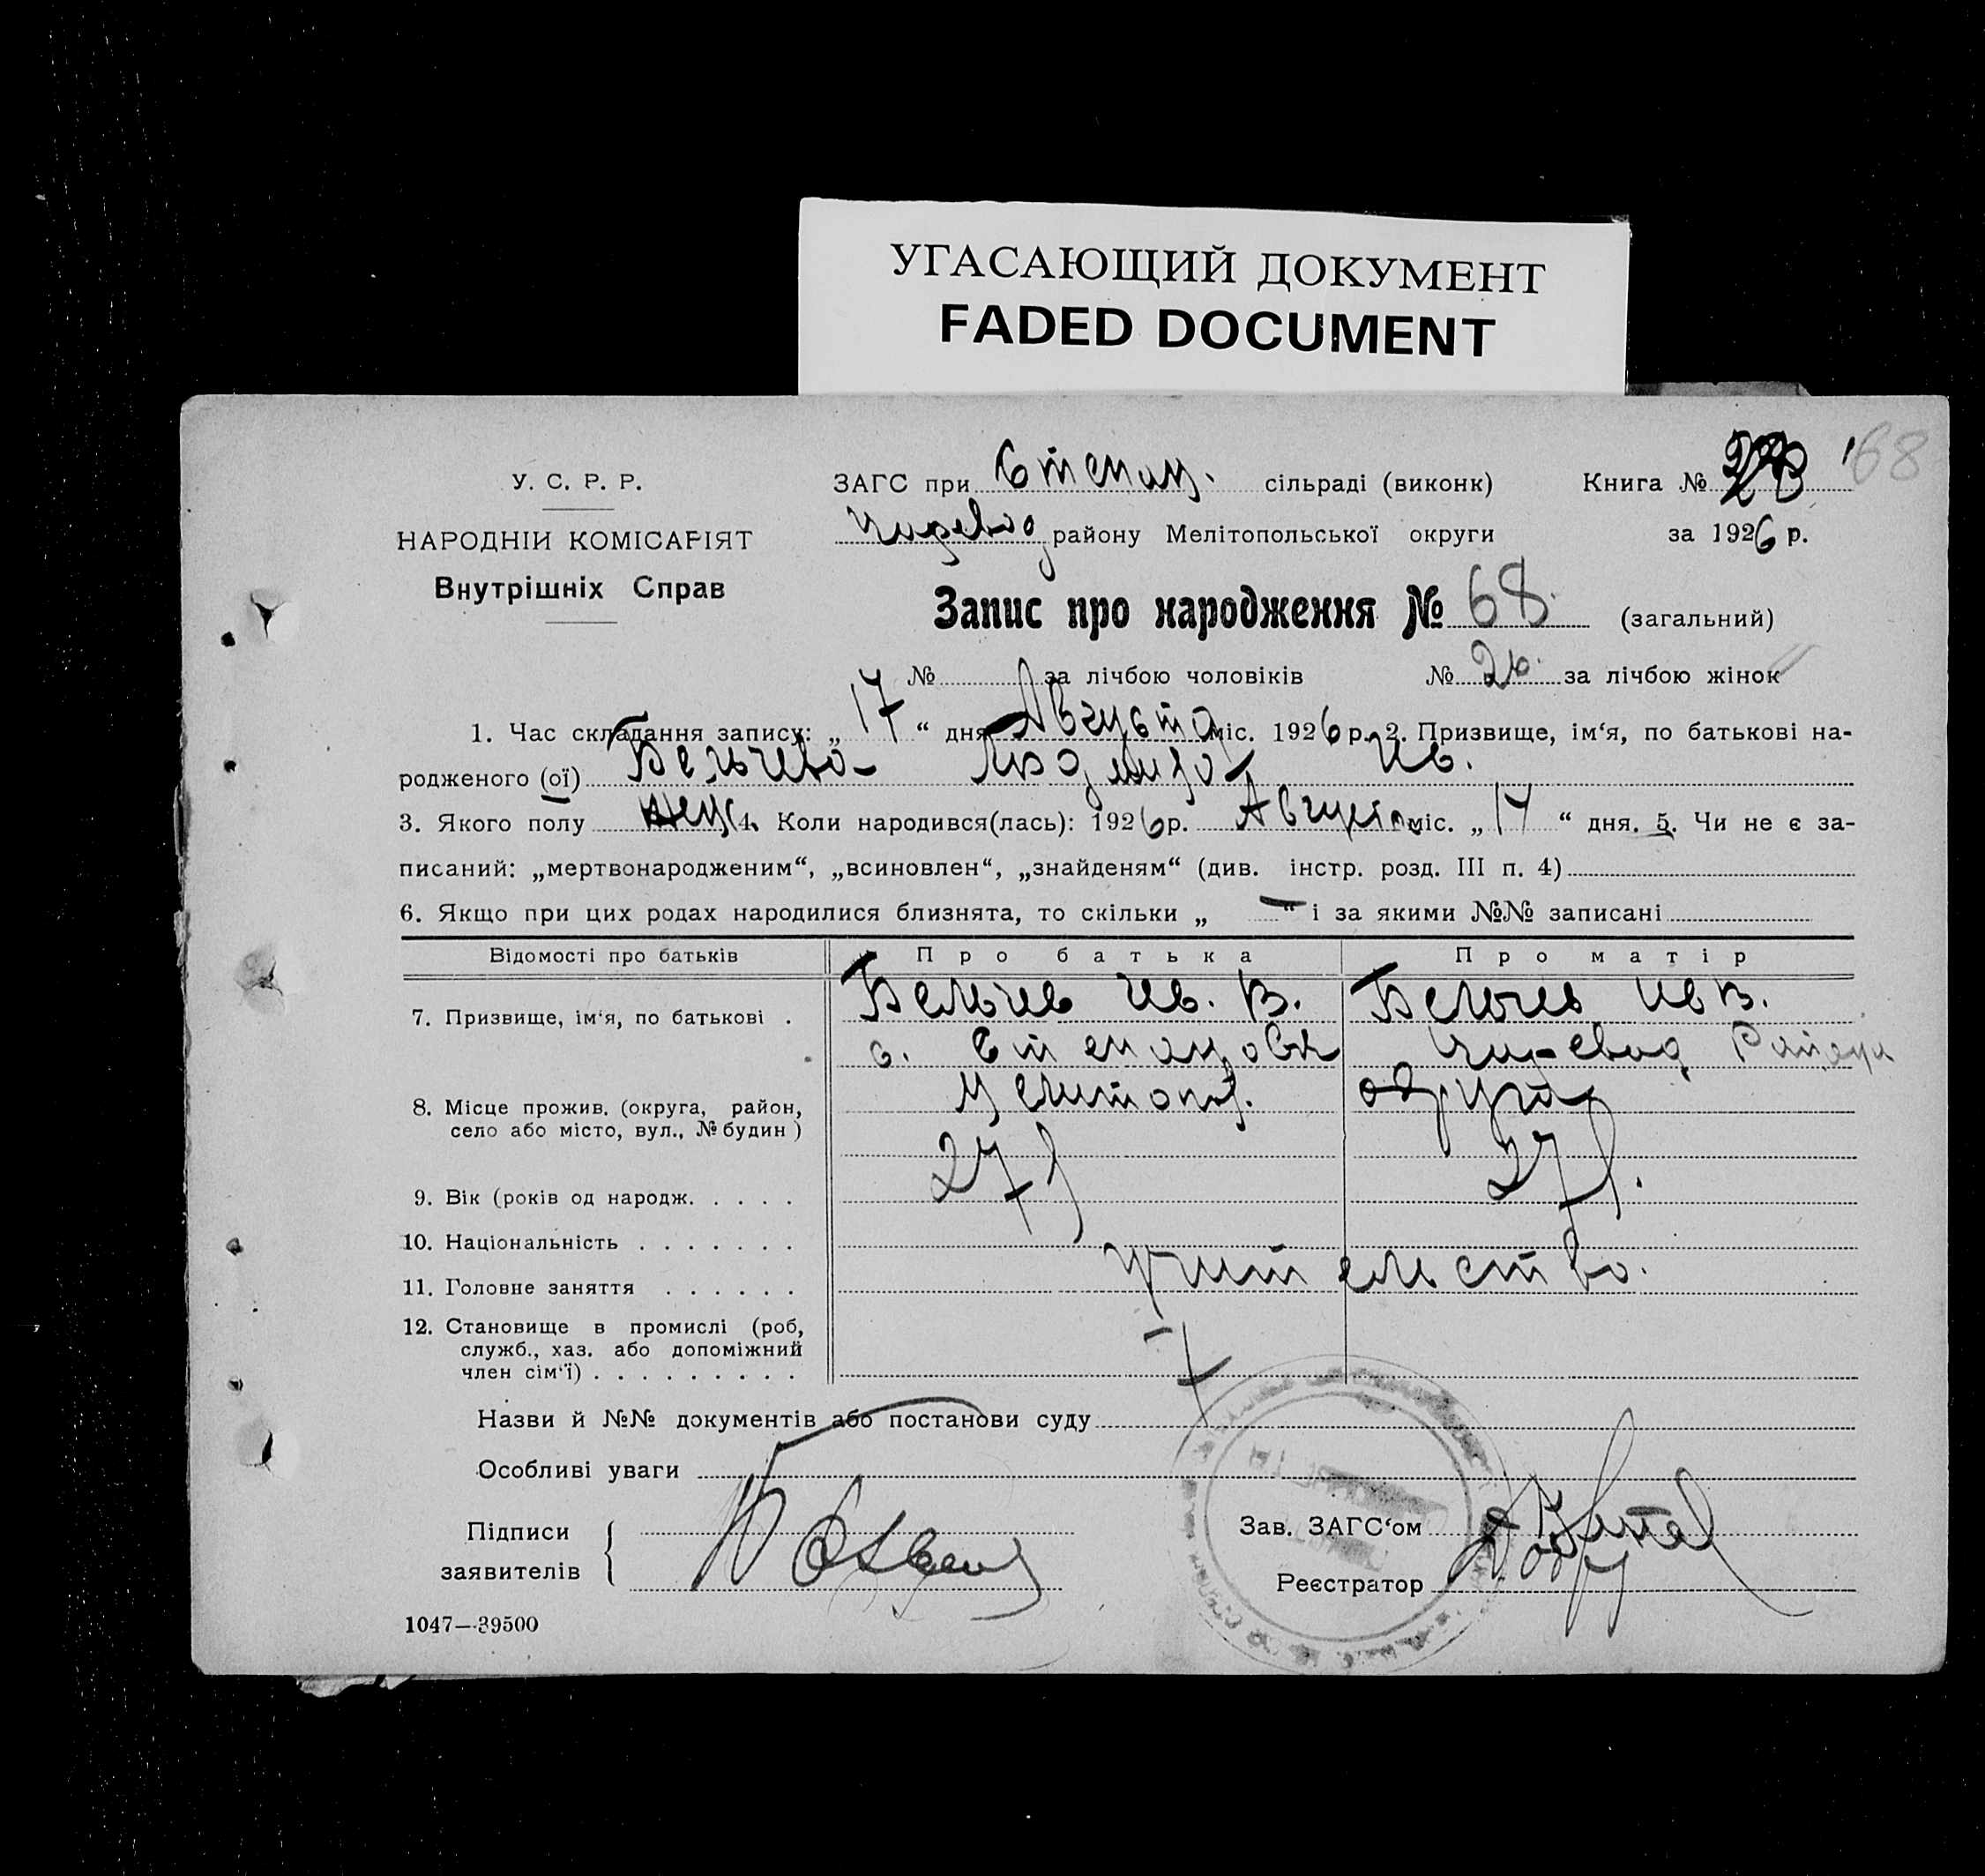 УГАСАЮЩИЙ ДОКУМЕНТ
FADED DOCUMENT
У. С. Р. Р.
НАРОДНІЙ КОМІСАРІЯТ
Внутрішніх Справ
ЗАГС при Степан. сільраді (виконк) Книга № 168
району Мелітопольської округи за 1926 р.
Запис про народження № 68. (загальний)
№ за лічбою чоловіків № 26. за лічбою жінок
1. Час складання запису: „ 17 “ дня Августа міс. 1926 р. 2. Призвище, ім‘я, по батькові на-
родженого (ої) Бельчева Людмира Ив.
3. Якого полу 4. Коли народився(лась): 1926 р. Августа міс. „ 17 “ дня. 5. Чи не є за-
писаний: „мертвонародженим“, „всиновлен“, „знайденям“ (див. інстр. розд. III п. 4)
6. Якщо при цих родах народилися близнята, то скільки „ — “ і за якими №№ записані
Відомості про батьків Про батька Про матір
7. Призвище, ім‘я, по батькові . Бельчев Ив. В. Бельчев Ив В.
с. Степановка Района
8. Місце прожив. (округа, район, Мелитоп. округа
село або місто, вул., № будин)
9. Вік (років од народж. . . . . 27 27
10. Національність . . . . . . .
11. Головне заняття . . . . . . учительство.
12. Становище в промислі (роб,
служб., хаз. або допоміжний
член сім‘ї) . . . . . . . . .
Назви й №№ документів або постанови суду
Особливі уваги
Підписи
заявителів
Зав. ЗАГС‘ом
Реєстратор
1047—39500